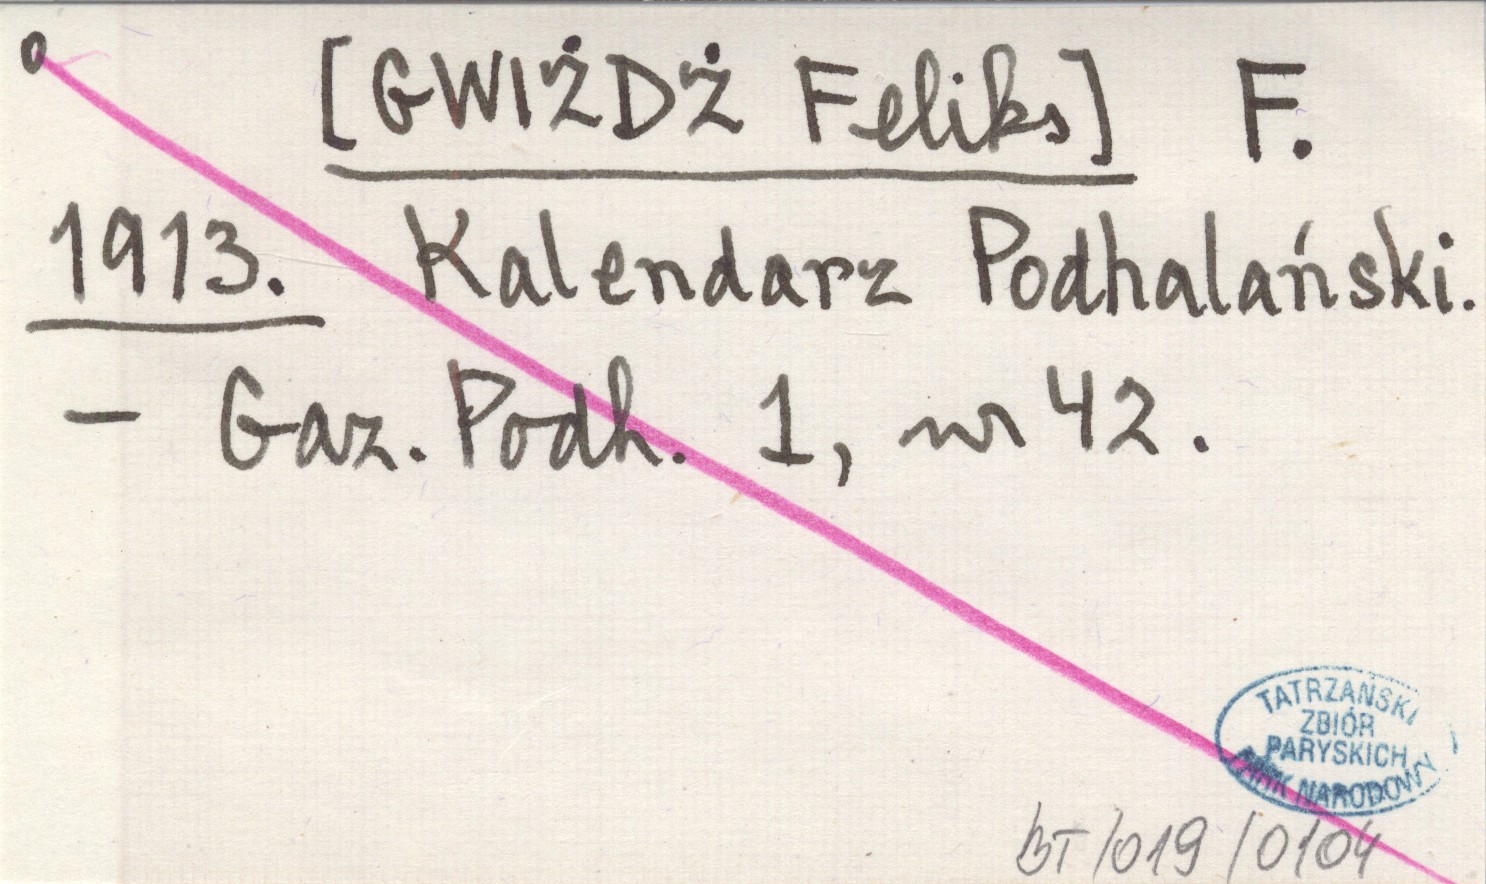 0 [GWIŻDŻ Feliks] F.
1913. Kalendarz Podhalański.
– Gaz. Podh. 1, nr 42.
TATRZAŃSKI
ZBIÓR
PARYSKICH
PARK NARODOWY
BT/019/0104